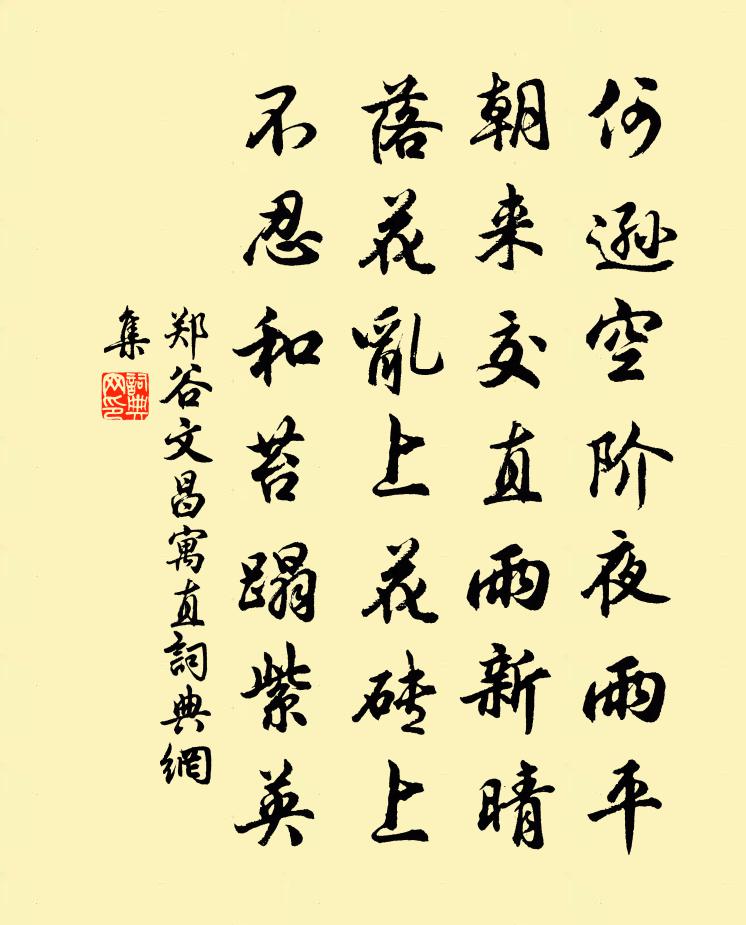 何遜空阶夜雨平
朝来交直雨新晴
落花亂上花砖上
不忍和苔蹋紫英
郑谷文昌寓直詞典網
集
詞典网印